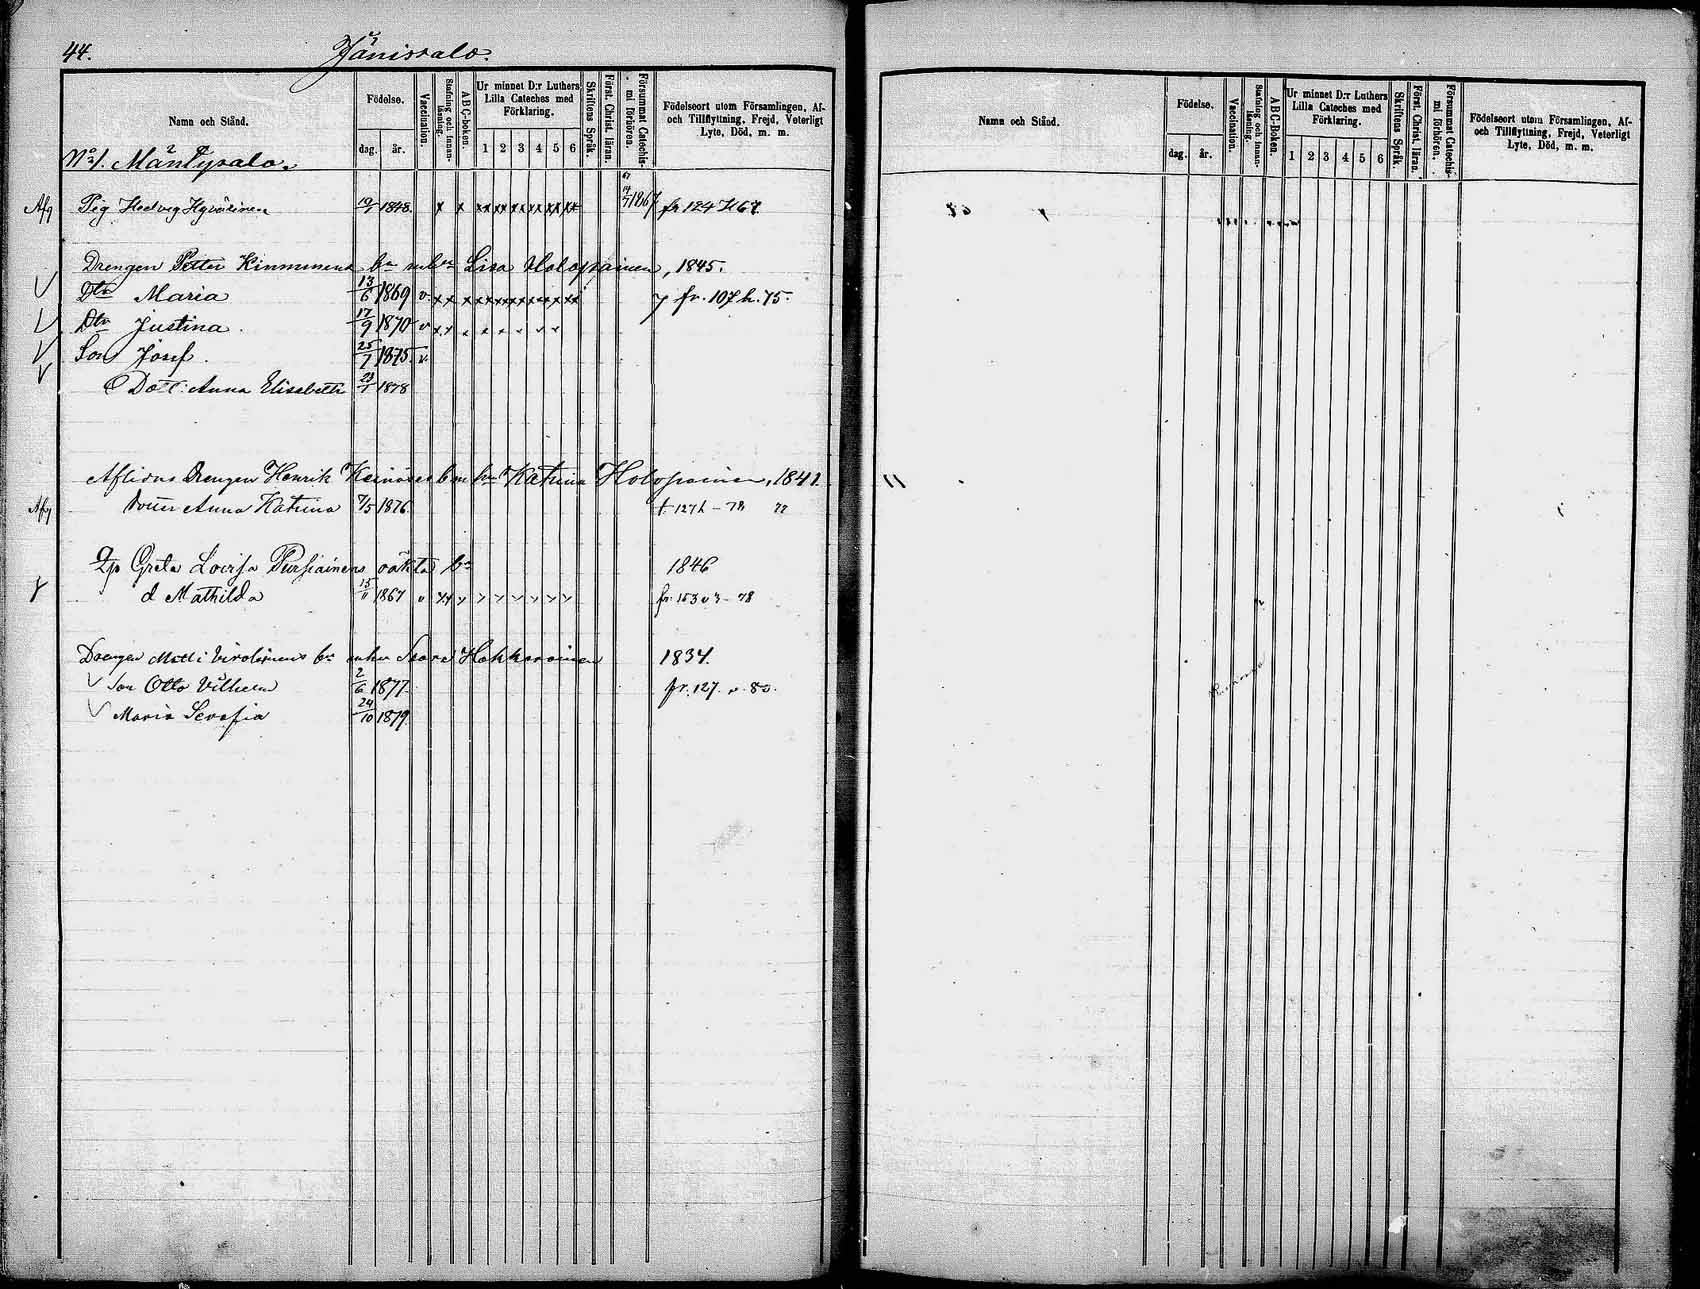 44. Jänissalo.
Namn och Stånd.
Födelse.
dag. år.
Vaccination.
Stafning och innanläsning.
ABC-boken.
Ur minnet D:r Luthers Lilla Cateches med Förklaring.
1 2 3 4 5 6
Skriftens Språk.
Först. Christ. läran.
Försummat Catechismi förhören.
Födelseort utom Församlingen, Af- och Tillflyttning, Frejd, Veterligt Lyte, Död, m. m.
No 1. Mäntysalo.
Afg Pig Hedvig Hyvärinen 1848. x x xx xx xx xx xx xx 1867 fr 124 h 67.
Drengen Petter Kinnunens bn m hu Lisa Holopainen, 1845.
Dtr Maria 13/6 1869 v. fr. 107 h. 75.
Dtr Justina. 17/9 1870 v
Son Josef. 25/7 1875. v.
Dott: Anna Elisabeth 23/1 1878
Aflidne Drengen Henrik bn m hu Katrina Holopainen, 1841.
Afg Anna Katrina 7/5 1876. 127 h - 78 77
Greta Lovisa Pursiainens oäkta bn 1846
d Mathilda 15/11 1867 v fr. 153 v 3 - 78
Drengen Matti Virolainens bn m hu Hakkarainen 1834.
Son Otto Vilhelm 2/6 1877. fr. 127. v. 80.
Maria Serafia 24/10 1879.
Namn och Stånd.
Födelse.
dag. år.
Vaccination.
Stafning och innanläsning.
ABC-Boken.
Ur minnet D:r Luthers Lilla Cateches med Förklaring.
1 2 3 4 5 6
Skriftens Språk.
Först. Christ. läran.
Försummat Catechismi förhören.
Födelseort utom Församlingen, Af- och Tillflyttning, Frejd, Veterligt Lyte, Död, m. m.